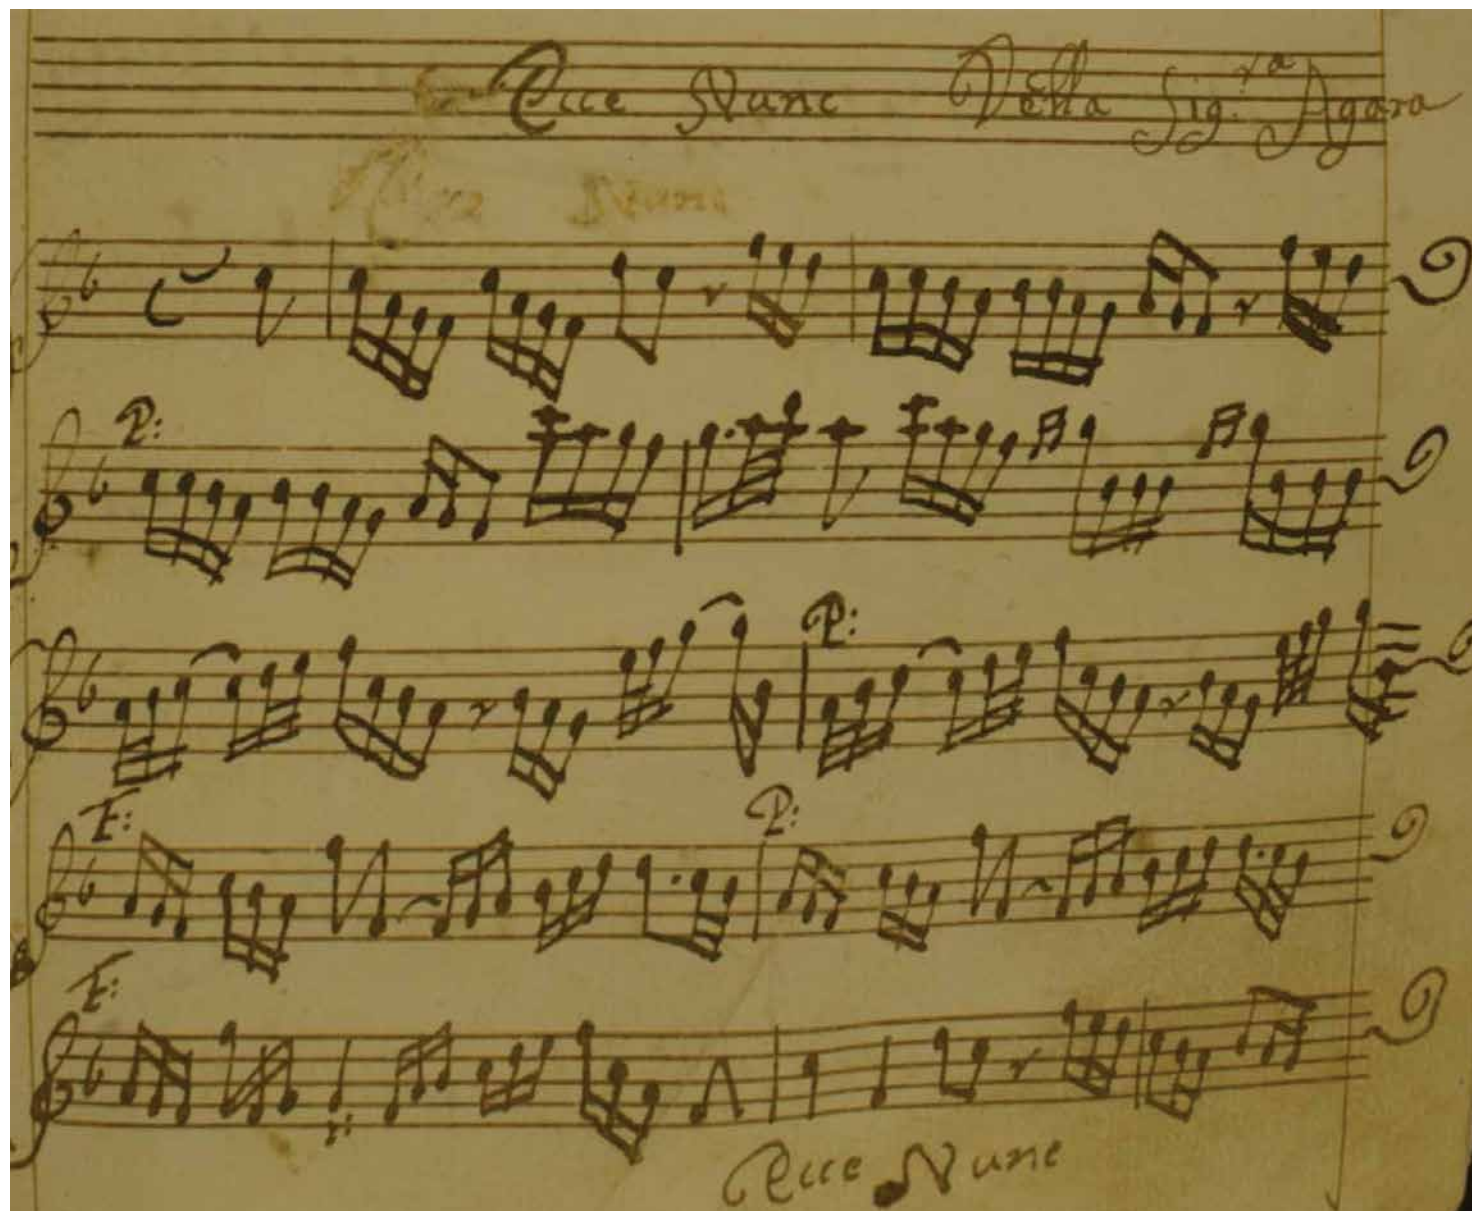 Ecce Nunc Della Sig.ra Agara
Nunc
P:
P:
F: P:
F:
Ecce Nunc